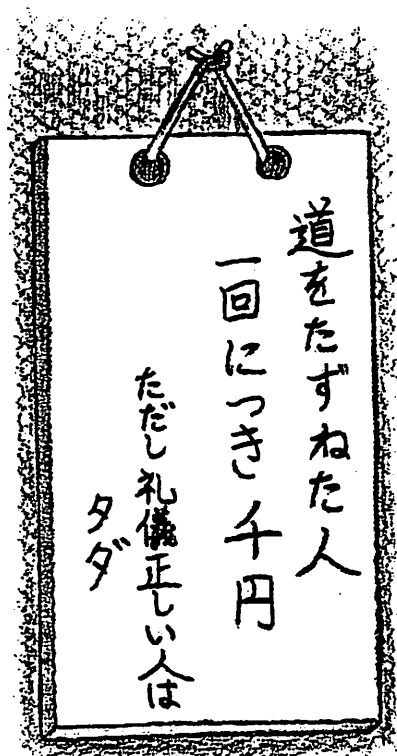 道をたずねた人
一回につき千円
ただし礼儀正しい人は
タダ